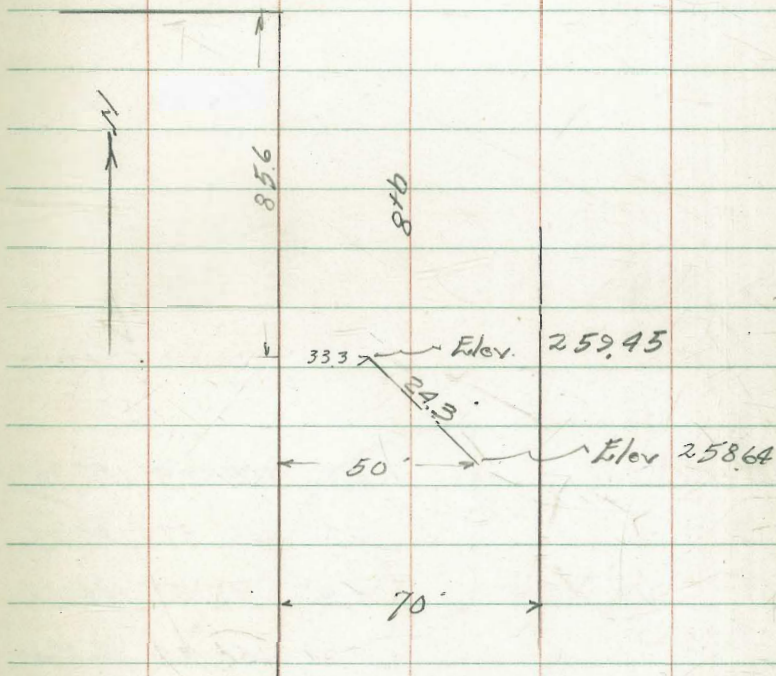 N
85.6
8th
33.3
Elev. 259.45
24.3
50'
Elev 258.64
70'